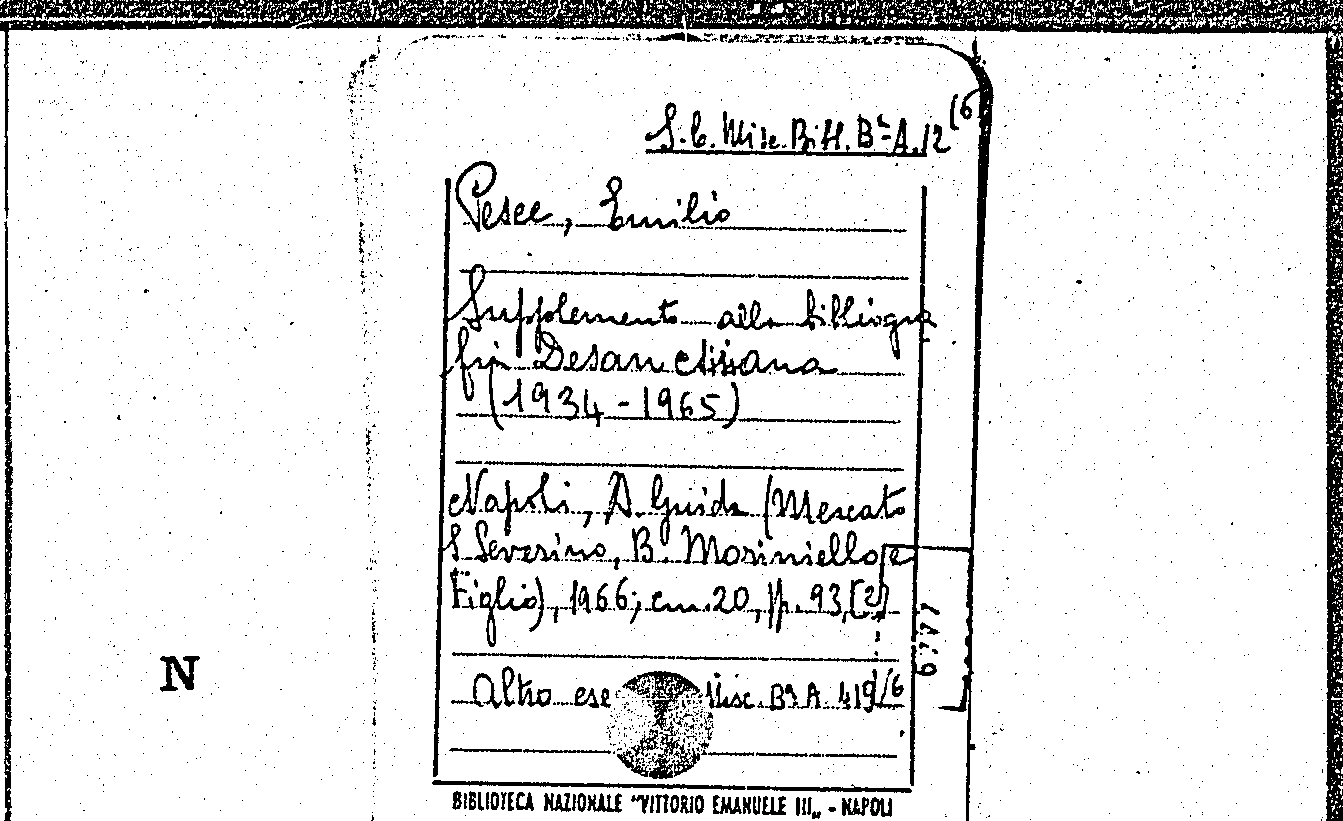 S.C. Misc. Bibl. Bª A. 12 (6
Pesce, Emilio
Supplemento alla bibliogra
fia Desanctisiana
(1934 - 1965)
Napoli, A. Guida (Mercato
S Severino, B. Mosiniello e
Figlio), 1966; cm. 20, pp. 93, [2]
6777
Altro ese Misc. Bª A. 419/6
N
BIBLIOTECA NAZIONALE "VITTORIO EMANUELE III„ - NAPOLI